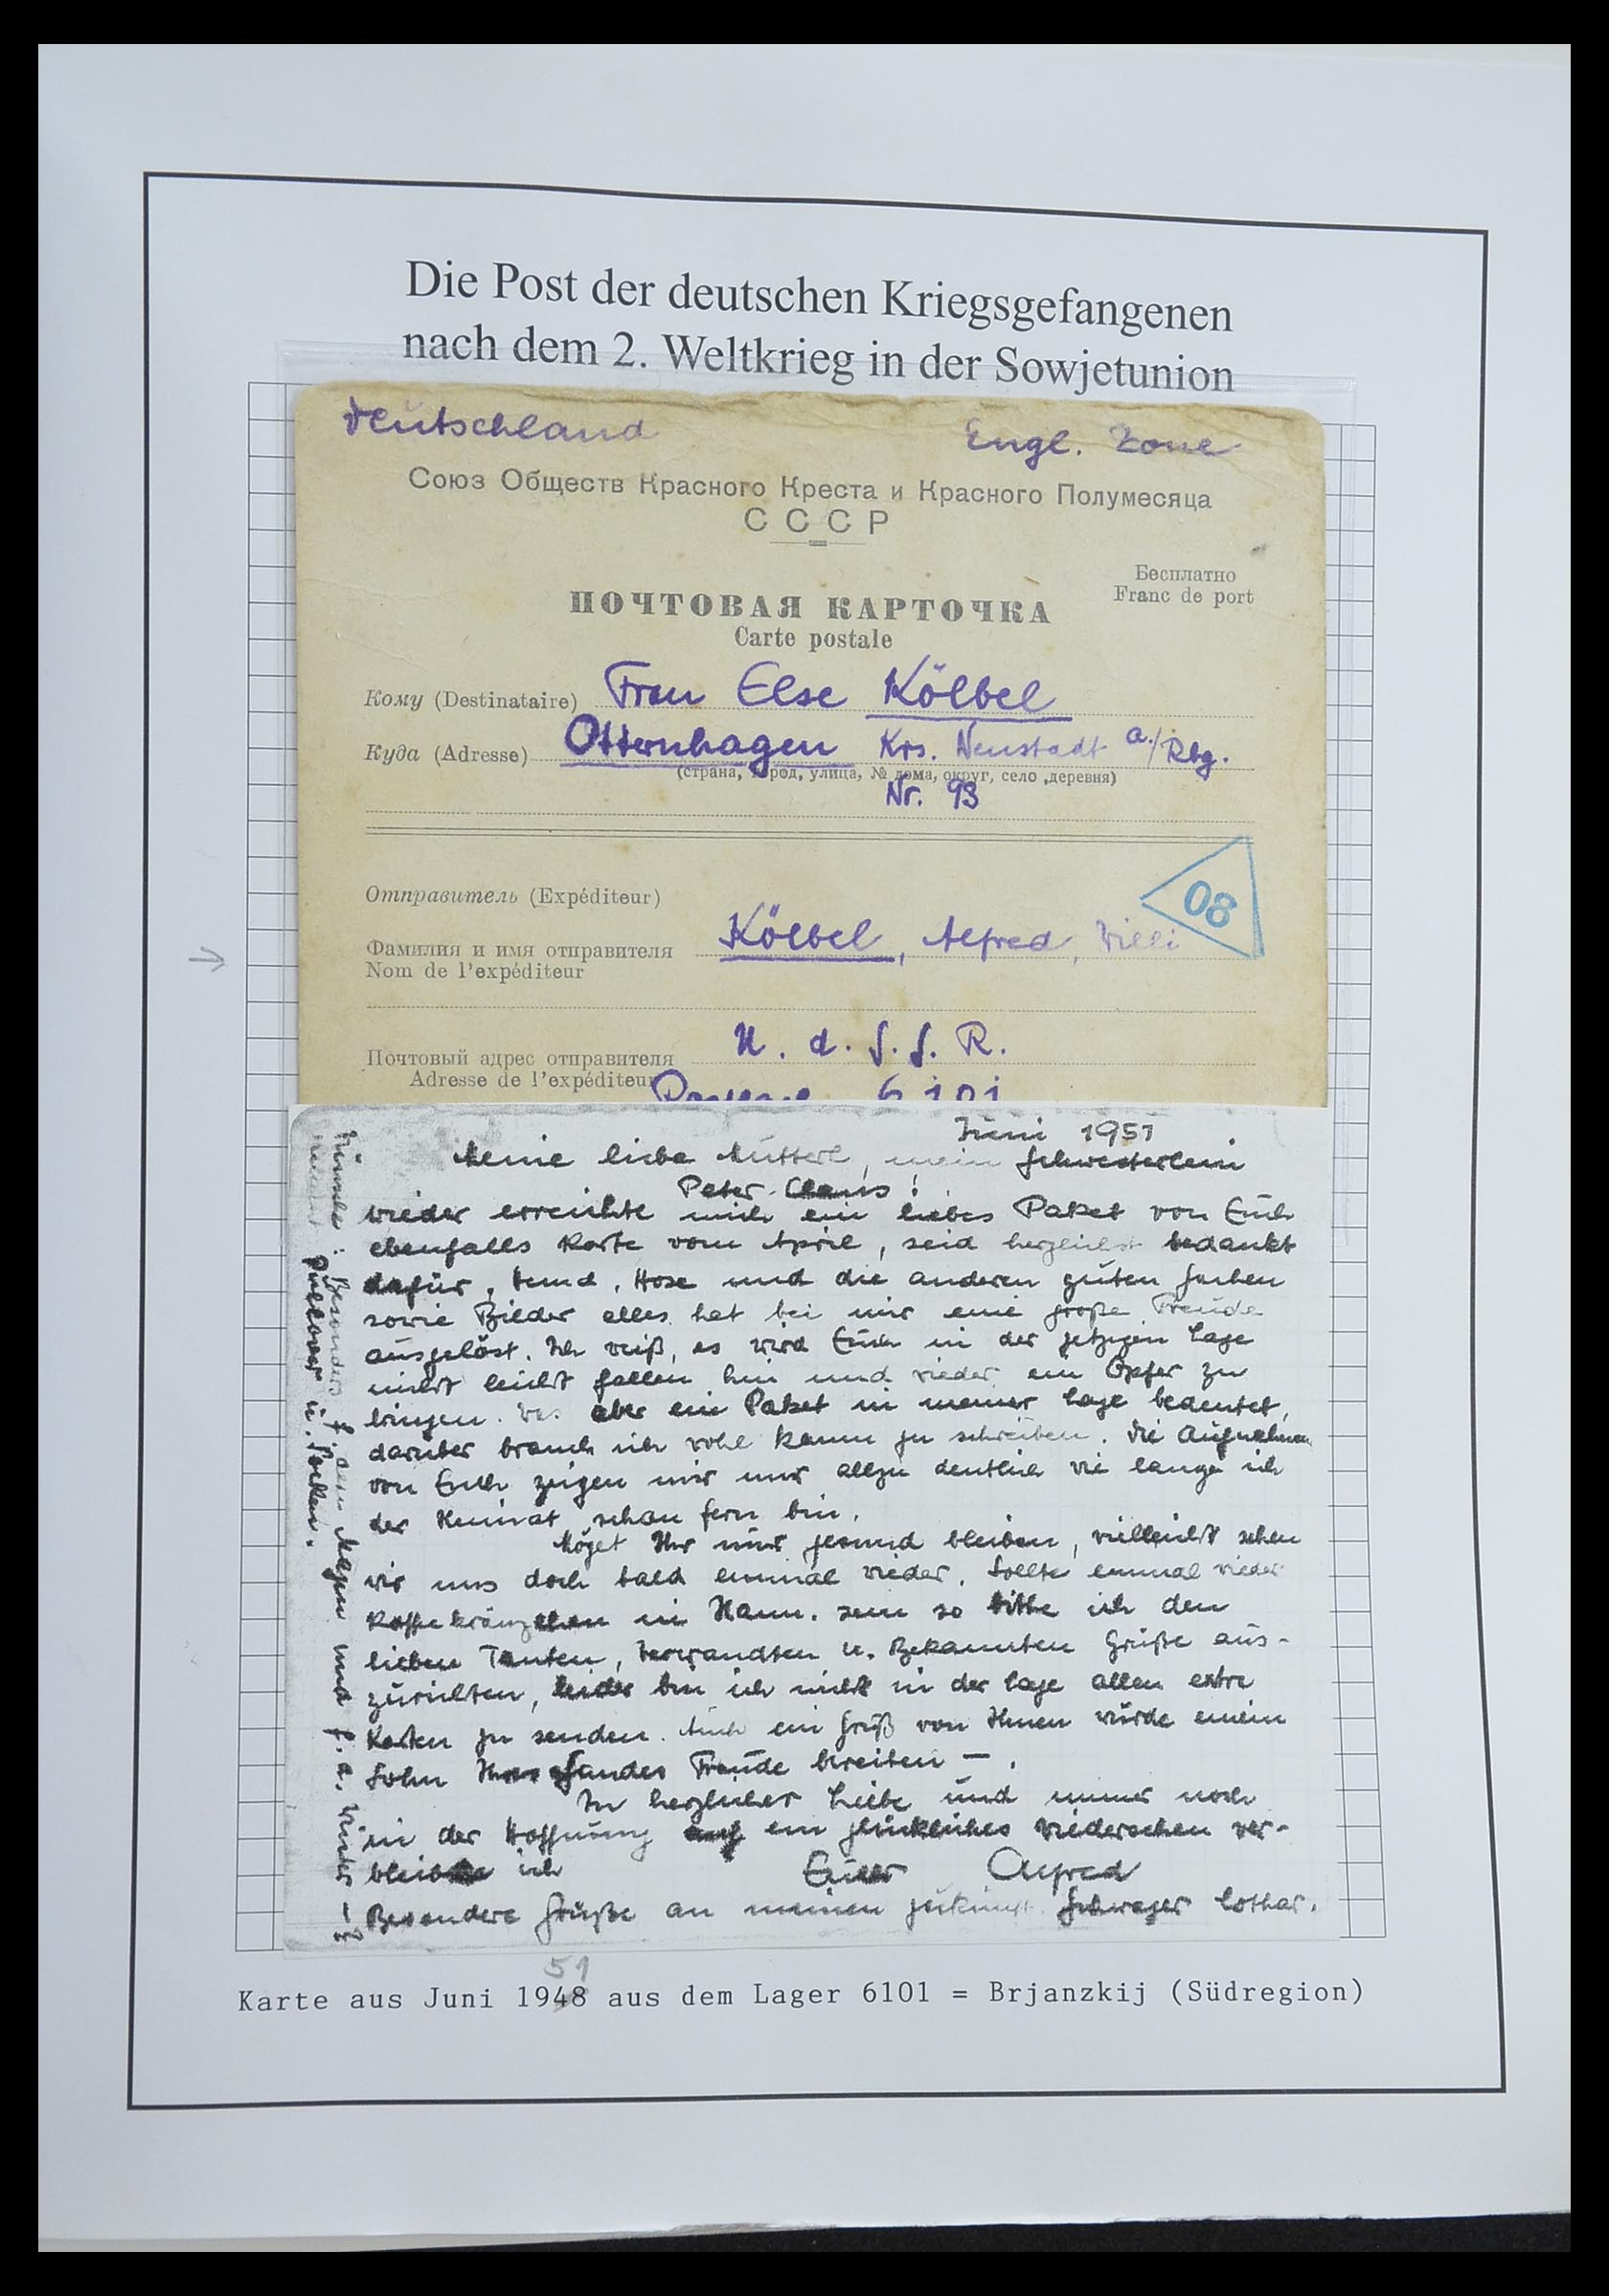 Die Post der deutschen Kriegsgefangenen
nach dem 2. Weltkrieg in der Sowjetunion
Deutschland Engl. Zone
Союз Обществ Красного Креста и Красного Полумесяца
СССР
Бесплатно
Franc de port
ПОЧТОВАЯ КАРТОЧКА
Carte postale
Кому (Destinataire) Frau Else Kölbel
Куда (Adresse) Otternhagen Krs. Neustadt a./Rbg.
(страна, город, улица, № дома, округ, село ,деревня)
Nr. 93
08
Отправитель (Expéditeur)
Фамилия и имя отправителя Kölbel, Alfred, Willi
Nom de l'expéditeur
Почтовый адрес отправителя U. d. S. S. R.
Adresse de l'expéditeur
6101
Juni 1951
Meine liebe Mutterl, mein Schwesterlein
Peter-Claus!
wieder erreichte mich ein liebes Paket von Euch
ebenfalls Karte vom April, seid herzlichst bedankt
dafür. Hemd, Hose und die anderen guten Sachen
sowie Bilder alles hat bei mir eine große Freude
ausgelöst. Ich weiß, es wird Euch in der jetzigen Lage
nicht leicht fallen hin und wieder ein Opfer zu
bringen. Was aber ein Paket in meiner Lage bedeutet,
darüber brauch ich wohl kaum zu schreiben. Die Aufnahmen
von Euch zeigen mir nur allzu deutlich wie lange ich
der Heimat schon fern bin.
Möget Ihr nur gesund bleiben, vielleicht sehen
wir uns doch bald einmal wieder. Sollte einmal wieder
Kaffekränzchen in Hann. sein so bitte ich den
lieben Tanten, Verwandten u. Bekannten Grüße aus-
zurichten, leider bin ich nicht in der Lage allen extra
Karten zu senden. Auch ein Gruß von Ihnen würde einem
Sohn Ihres Landes Freude bereiten –.
In herzlicher Liebe und immer noch
in der Hoffnung auf ein glückliches Wiedersehen ver-
bleibe ich Euer Alfred
Besondere Grüße an meinen zukünft. Schwager Lothar.
Wünsche: Besonders f. den Magen und f. d. Winter –
Pullover u. Socken.
51
Karte aus Juni 1948 aus dem Lager 6101 = Brjanzkij (Südregion)